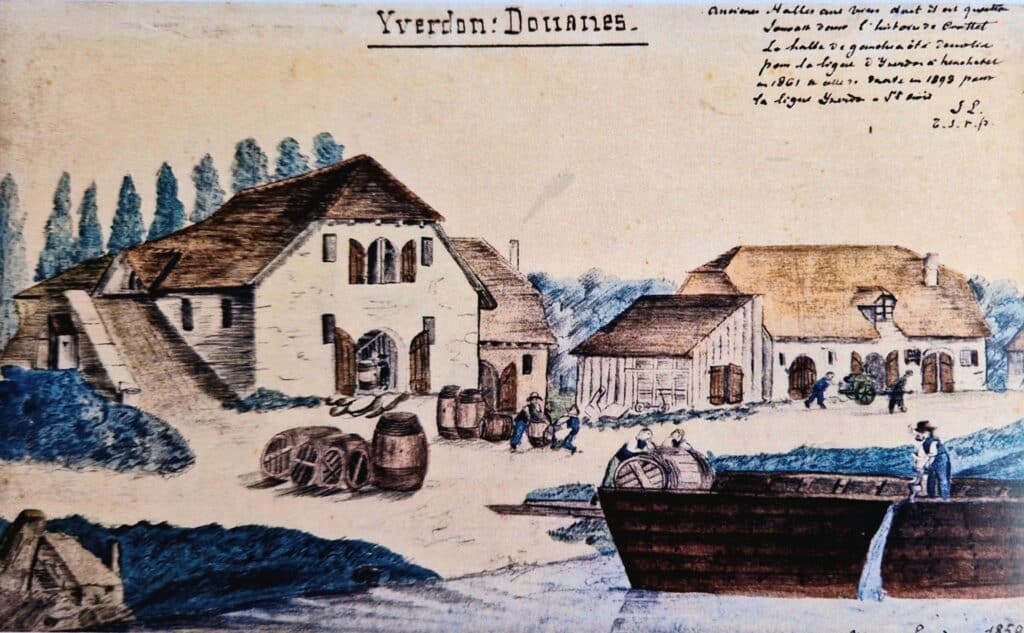 Yverdon: Douanes.
Anciennes Halles aux vins dont il est question
souvent dans l'histoire de Crottet
La halle de gauche a été démolie
pour la ligne d'Yverdon à
en 1861 celle de droite en 1893 pour
la ligne Yverdon - Ste
J L.